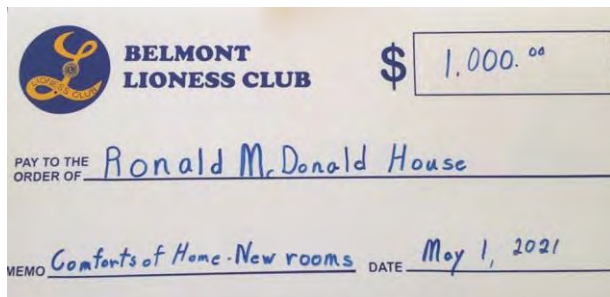 BELMONT
LIONESS CLUB
$ 1.000.00
LIONESS CLUB
PAY TO THE
ORDER OF Ronald McDonald House
MEMO Comforts of Home - New rooms DATE May 1, 2021